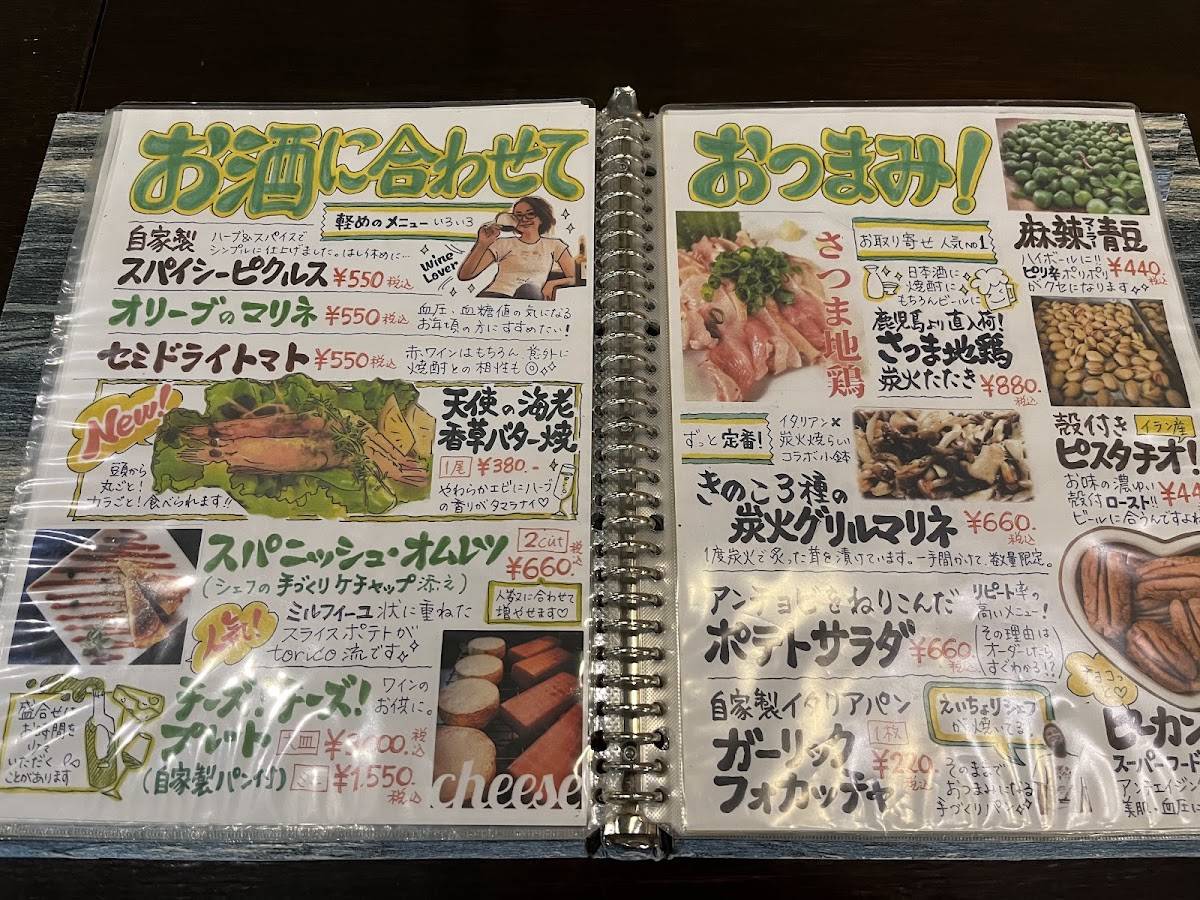 お酒に合わせて
軽めのメニューいろいろ
Wine Lover
自家製
ハーブ&スパイスで
シンプルに仕上げました。はしり休めに…
スパイシーピクルス ¥550税込
オリーブのマリネ ¥550税込
血圧、血糖値の気になる
お年頃の方にすすめたい!
セミドライトマト ¥550税込
赤ワインはもちろん 意外に
焼酎との相性も◎
New!
頭から
丸ごと!
カラごと!食べられます!!
天使の海老
香草バター焼
1尾 ¥380.-
やわらかエビにハーブ
の香りがタマラナイ♡
スパニッシュ・オムレツ
2cut
¥660.税込
(シェフの手づくりケチャップ添え)
人数に合わせて
増やせます♡
人気!
ミルフィーユ状に重ねた
スライスポテトが
toruco流です
チーズ!チーズ!
プレート
(自家製パン付)
ワインの
お供に。
¥1,550.税込
盛合せに
お時間を
いただく
ことがあります
cheese
おつまみ!
さつま地鶏
お取り寄せ 人気no1
日本酒に
焼酎に
もちろんビールに
鹿児島より直入荷!
さつま地鶏
炭火たたき ¥880.税込
麻辣青豆
マーラー
ハイボールに!!
ピリ辛ポリポリ
がクセになります
¥440.税込
殻付き
イラン産
ピスタチオ!
お味の濃ゆい
殻付ロースト!!
ビールに合うんですよ
¥44
ずっと定番!
イタリアン×
炭火焼らしい
コラボ小鉢
きのこ3種の
炭火グリルマリネ ¥660.税込
1度炭火で炙った茸を漬けています。一手間かけて、数量限定。
アンチョビをねりこんだ
ポテトサラダ ¥660.税込
リピート率の
高いメニュー!
その理由は
オーダーしたら
すぐわかる!?
自家製イタリアパン
ガーリック
フォカッチャ
1枚
¥220.税込
えいちょりシェフ
が焼いてる。
そのままで
おつまみになる
手づくりパン
チョコっと♡
ピーカン
スーパーフード
アンチエイジン
美肌・血圧に